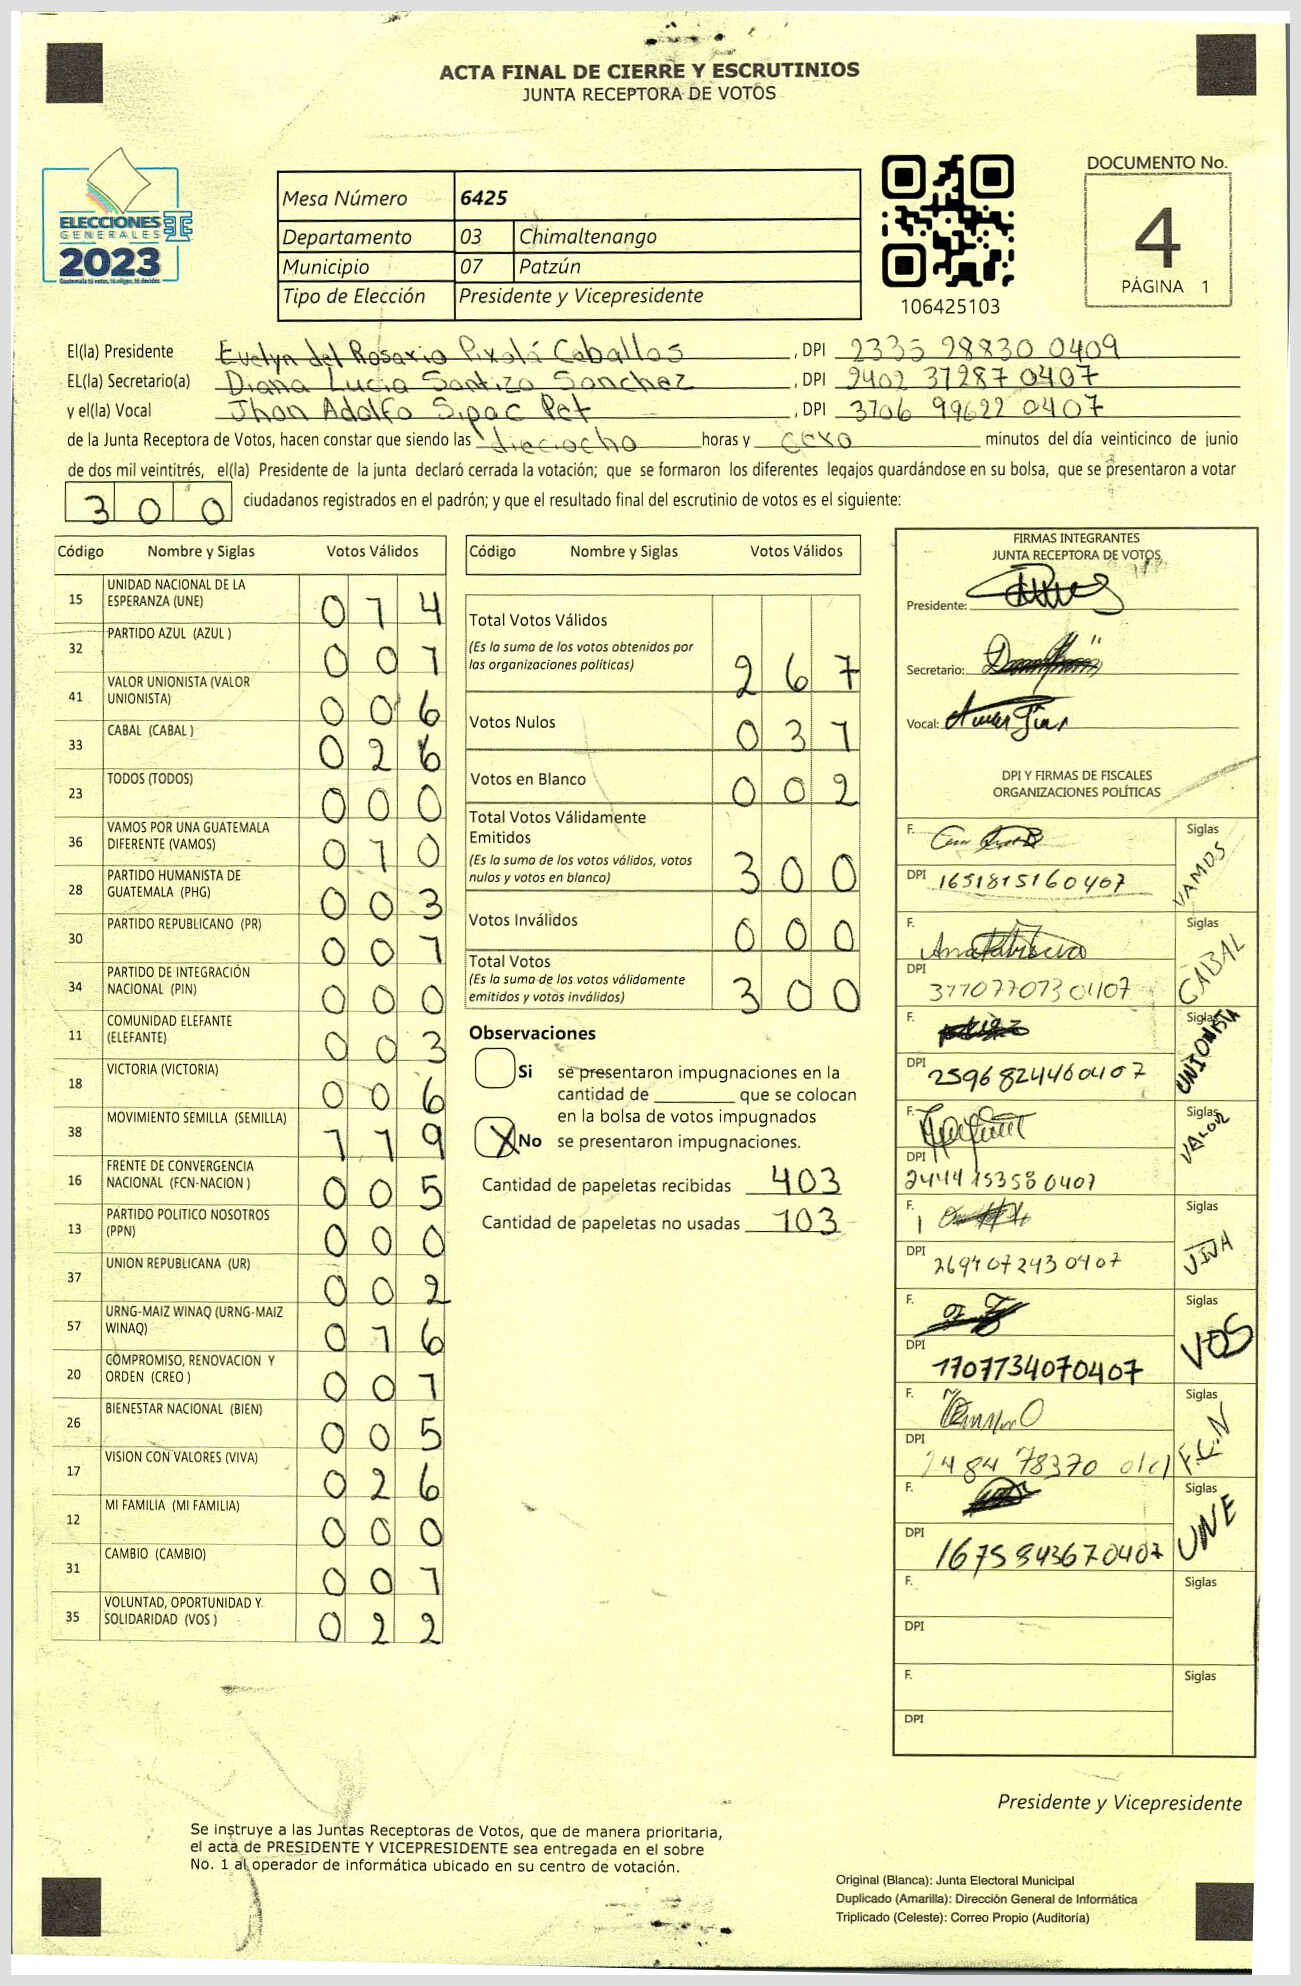 ACTA FINAL DE CIERRE Y ESCRUTINIOS
JUNTA RECEPTORA DE VOTOS
ELECCIONES
GENERALES
2023
Guatemala tú votes, tú eliges, tú decides
Mesa Número 6425
Departamento 03 Chimaltenango
Municipio 07 Patzún
Tipo de Elección Presidente y Vicepresidente
106425103
DOCUMENTO No.
4
PÁGINA 1
El(la) Presidente Evelyn del Rosario Pixolá Ceballos , DPI 2335 98830 0409
EL(la) Secretario(a) Diana Lucia Santizo Sanchez , DPI 2402 37287 0407
y el(la) Vocal Jhon Adolfo Sipac Pet , DPI 3706 99622 0407
de la Junta Receptora de Votos, hacen constar que siendo las dieciocho horas y cero minutos del día veinticinco de junio
de dos mil veintitrés, el(la) Presidente de la junta declaró cerrada la votación; que se formaron los diferentes legajos guardándose en su bolsa, que se presentaron a votar
300 ciudadanos registrados en el padrón; y que el resultado final del escrutinio de votos es el siguiente:
Código Nombre y Siglas Votos Válidos
15 UNIDAD NACIONAL DE LA ESPERANZA (UNE) 014
32 PARTIDO AZUL (AZUL ) 001
41 VALOR UNIONISTA (VALOR UNIONISTA) 006
33 CABAL (CABAL ) 026
23 TODOS (TODOS) 000
36 VAMOS POR UNA GUATEMALA DIFERENTE (VAMOS) 010
28 PARTIDO HUMANISTA DE GUATEMALA (PHG) 003
30 PARTIDO REPUBLICANO (PR) 001
34 PARTIDO DE INTEGRACIÓN NACIONAL (PIN) 000
11 COMUNIDAD ELEFANTE (ELEFANTE) 003
18 VICTORIA (VICTORIA) 006
38 MOVIMIENTO SEMILLA (SEMILLA) 119
16 FRENTE DE CONVERGENCIA NACIONAL (FCN-NACION ) 005
13 PARTIDO POLITICO NOSOTROS (PPN) 000
37 UNION REPUBLICANA (UR) 002
57 URNG-MAIZ WINAQ (URNG-MAIZ WINAQ) 016
20 COMPROMISO, RENOVACION Y ORDEN (CREO ) 001
26 BIENESTAR NACIONAL (BIEN) 005
17 VISION CON VALORES (VIVA) 026
12 MI FAMILIA (MI FAMILIA) 000
31 CAMBIO (CAMBIO) 001
35 VOLUNTAD, OPORTUNIDAD Y SOLIDARIDAD (VOS ) 022
Código Nombre y Siglas Votos Válidos
Total Votos Válidos 267
(Es la suma de los votos obtenidos por
las organizaciones políticas)
Votos Nulos 031
Votos en Blanco 002
Total Votos Válidamente
Emitidos 300
(Es la suma de los votos válidos, votos
nulos y votos en blanco)
Votos Inválidos 000
Total Votos 300
(Es la suma de los votos válidamente
emitidos y votos inválidos)
Observaciones
Si se presentaron impugnaciones en la
cantidad de ________ que se colocan
en la bolsa de votos impugnados
X No se presentaron impugnaciones.
Cantidad de papeletas recibidas 403
Cantidad de papeletas no usadas 103
FIRMAS INTEGRANTES
JUNTA RECEPTORA DE VOTOS
Presidente:
Secretario:
Vocal:
DPI Y FIRMAS DE FISCALES
ORGANIZACIONES POLÍTICAS
F. Siglas VAMOS
DPI 1651815160407
F. Siglas CABAL
DPI 3770770730407
F. Siglas UNIONISTA
DPI 2596824460407
F. Siglas VALOR
DPI 2444153580407
F. Siglas VIVA
DPI 2694072430407
F. Siglas VOS
DPI 1707734070407
F. Siglas F.C.N
DPI 78370
F. Siglas UNE
DPI 1675943670407
F. Siglas
DPI
F. Siglas
DPI
Presidente y Vicepresidente
Se instruye a las Juntas Receptoras de Votos, que de manera prioritaria,
el acta de PRESIDENTE Y VICEPRESIDENTE sea entregada en el sobre
No. 1 al operador de informática ubicado en su centro de votación.
Original (Blanca): Junta Electoral Municipal
Duplicado (Amarilla): Dirección General de Informática
Triplicado (Celeste): Correo Propio (Auditoría)